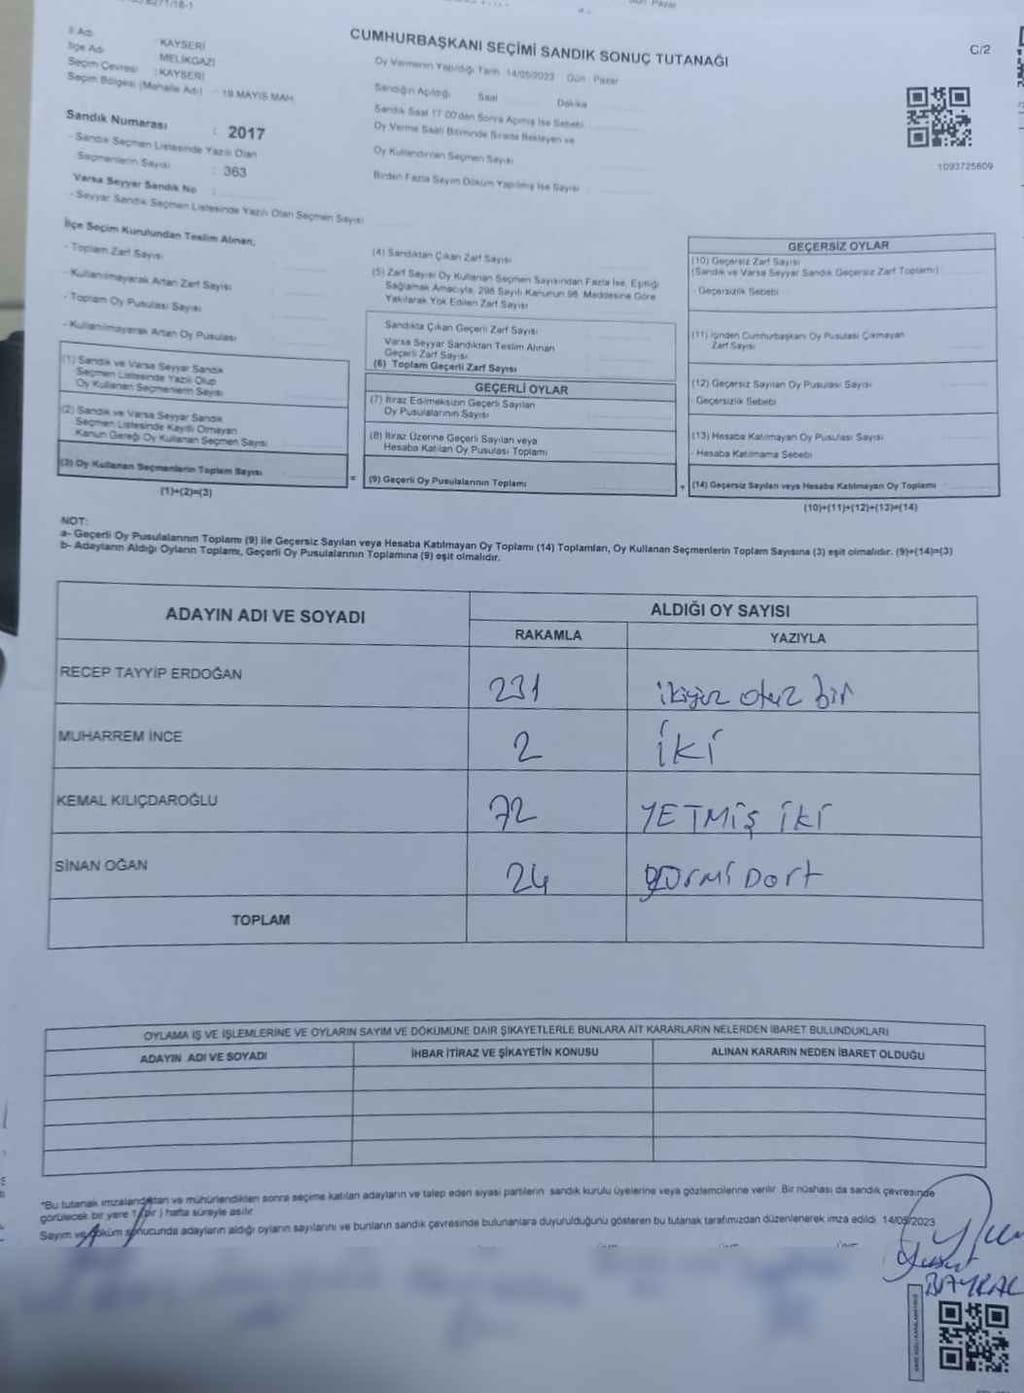 CUMHURBAŞKANI SEÇİMİ SANDIK SONUÇ TUTANAĞI
C/2
İl Adı : KAYSERİ
İlçe Adı : MELİKGAZİ
Seçim Çevresi : KAYSERİ
Seçim Bölgesi (Mahalle Adı) : 19 MAYIS MAH.
Oy Vermenin Yapıldığı Tarih 14/05/2023 Gün Pazar
Sandığın Açıldığı Saat Dakika
Sandık Saat 17.00'den Sonra Açılmış İse Sebebi
Oy Verme Saati Bitiminde Sırada Bekleyen ve
Oy Kullandırılan Seçmen Sayısı
Birden Fazla Sayım Döküm Yapılmış İse Sayısı
1093725609
Sandık Numarası : 2017
- Sandık Seçmen Listesinde Yazılı Olan
Seçmenlerin Sayısı : 363
Varsa Seyyar Sandık No :
- Seyyar Sandık Seçmen Listesinde Yazılı Olan Seçmen Sayısı
İlçe Seçim Kurulundan Teslim Alınan;
- Toplam Zarf Sayısı
- Kullanılmayarak Artan Zarf Sayısı
- Toplam Oy Pusulası Sayısı
- Kullanılmayarak Artan Oy Pusulası
(1) Sandık ve Varsa Seyyar Sandık
Seçmen Listesinde Yazılı Olup
Oy Kullanan Seçmenlerin Sayısı
(2) Sandık ve Varsa Seyyar Sandık
Seçmen Listesinde Kayıtlı Olmayan
Kanun Gereği Oy Kullanan Seçmen Sayısı
(3) Oy Kullanan Seçmenlerin Toplam Sayısı
(1)+(2)=(3)
(4) Sandıktan Çıkan Zarf Sayısı
(5) Zarf Sayısı Oy Kullanan Seçmen Sayısından Fazla İse, Eşitliği
Sağlamak Amacıyla, 298 Sayılı Kanunun 98. Maddesine Göre
Yakılarak Yok Edilen Zarf Sayısı
Sandıkta Çıkan Geçerli Zarf Sayısı
Varsa Seyyar Sandıktan Teslim Alınan
Geçerli Zarf Sayısı
(6) Toplam Geçerli Zarf Sayısı
GEÇERLİ OYLAR
(7) İtiraz Edilmeksizin Geçerli Sayılan
Oy Pusulalarının Sayısı
(8) İtiraz Üzerine Geçerli Sayılan veya
Hesaba Katılan Oy Pusulası Toplamı
= (9) Geçerli Oy Pusulalarının Toplamı
GEÇERSİZ OYLAR
(10) Geçersiz Zarf Sayısı
(Sandık ve Varsa Seyyar Sandık Geçersiz Zarf Toplamı)
- Geçersizlik Sebebi
(11) İçinden Cumhurbaşkanı Oy Pusulası Çıkmayan
Zarf Sayısı
(12) Geçersiz Sayılan Oy Pusulası Sayısı
- Geçersizlik Sebebi
(13) Hesaba Katılmayan Oy Pusulası Sayısı
- Hesaba Katılmama Sebebi
+ (14) Geçersiz Sayılan veya Hesaba Katılmayan Oy Toplamı
(10)+(11)+(12)+(13)=(14)
NOT:
a- Geçerli Oy Pusulalarının Toplamı (9) ile Geçersiz Sayılan veya Hesaba Katılmayan Oy Toplamı (14) Toplamları, Oy Kullanan Seçmenlerin Toplam Sayısına (3) eşit olmalıdır. (9)+(14)=(3)
b- Adayların Aldığı Oyların Toplamı, Geçerli Oy Pusulalarının Toplamına (9) eşit olmalıdır.
ADAYIN ADI VE SOYADI
ALDIĞI OY SAYISI
RAKAMLA YAZIYLA
RECEP TAYYİP ERDOĞAN 231 ikiyüz otuz bir
MUHARREM İNCE 2 İKİ
KEMAL KILIÇDAROĞLU 72 YETMİŞ İKİ
SİNAN OĞAN 24 yirmi Dört
TOPLAM
OYLAMA İŞ VE İŞLEMLERİNE VE OYLARIN SAYIM VE DÖKÜMÜNE DAİR ŞİKAYETLERLE BUNLARA AİT KARARLARIN NELERDEN İBARET BULUNDUKLARI
ADAYIN ADI VE SOYADI İHBAR İTİRAZ VE ŞİKAYETİN KONUSU ALINAN KARARIN NEDEN İBARET OLDUĞU
*Bu tutanak imzalandıktan ve mühürlendikten sonra seçime katılan adayların ve talep eden siyasi partilerin sandık kurulu üyelerine veya gözlemcilerine verilir. Bir nüshası da sandık çevresinde
görülecek bir yere 1 (bir) hafta süreyle asılır.
Sayım ve döküm sonucunda adayların aldığı oyların sayılarını ve bunların sandık çevresinde bulunanlara duyurulduğunu gösteren bu tutanak tarafımızdan düzenlenerek imza edildi. 14/05/2023